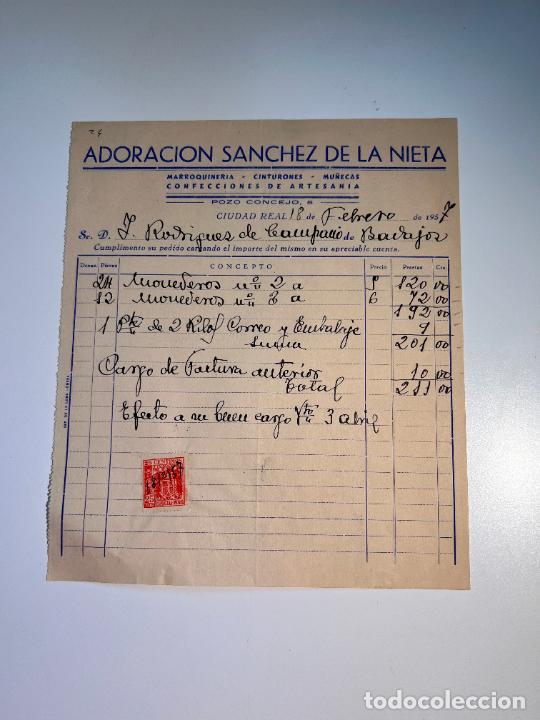 ADORACION SANCHEZ DE LA NIETA
MARROQUINERIA - CINTURONES - MUÑECAS
CONFECCIONES DE ARTESANIA
POZO CONCEJO, 8
CIUDAD REAL 18 de Febrero de 1957
Sr. D. J. Rodriguez de Campano de Badajos
Cumplimento su pedido cargando el importe del mismo en su apreciable cuenta.
CONCEPTO Precio Pesetas Cts
24 Monederos nº 2 a 5 120 00
12 Monederos nº 3 a 6 72 00
192 00
1 Pte de 2 Kilos Correo y Embalaje 9
Suma 201 00
Cargo de Factura anterior 10 00
Total 211 00
Efecto a su buen cargo Vto 3 abril
todocoleccion
todocoleccion.net